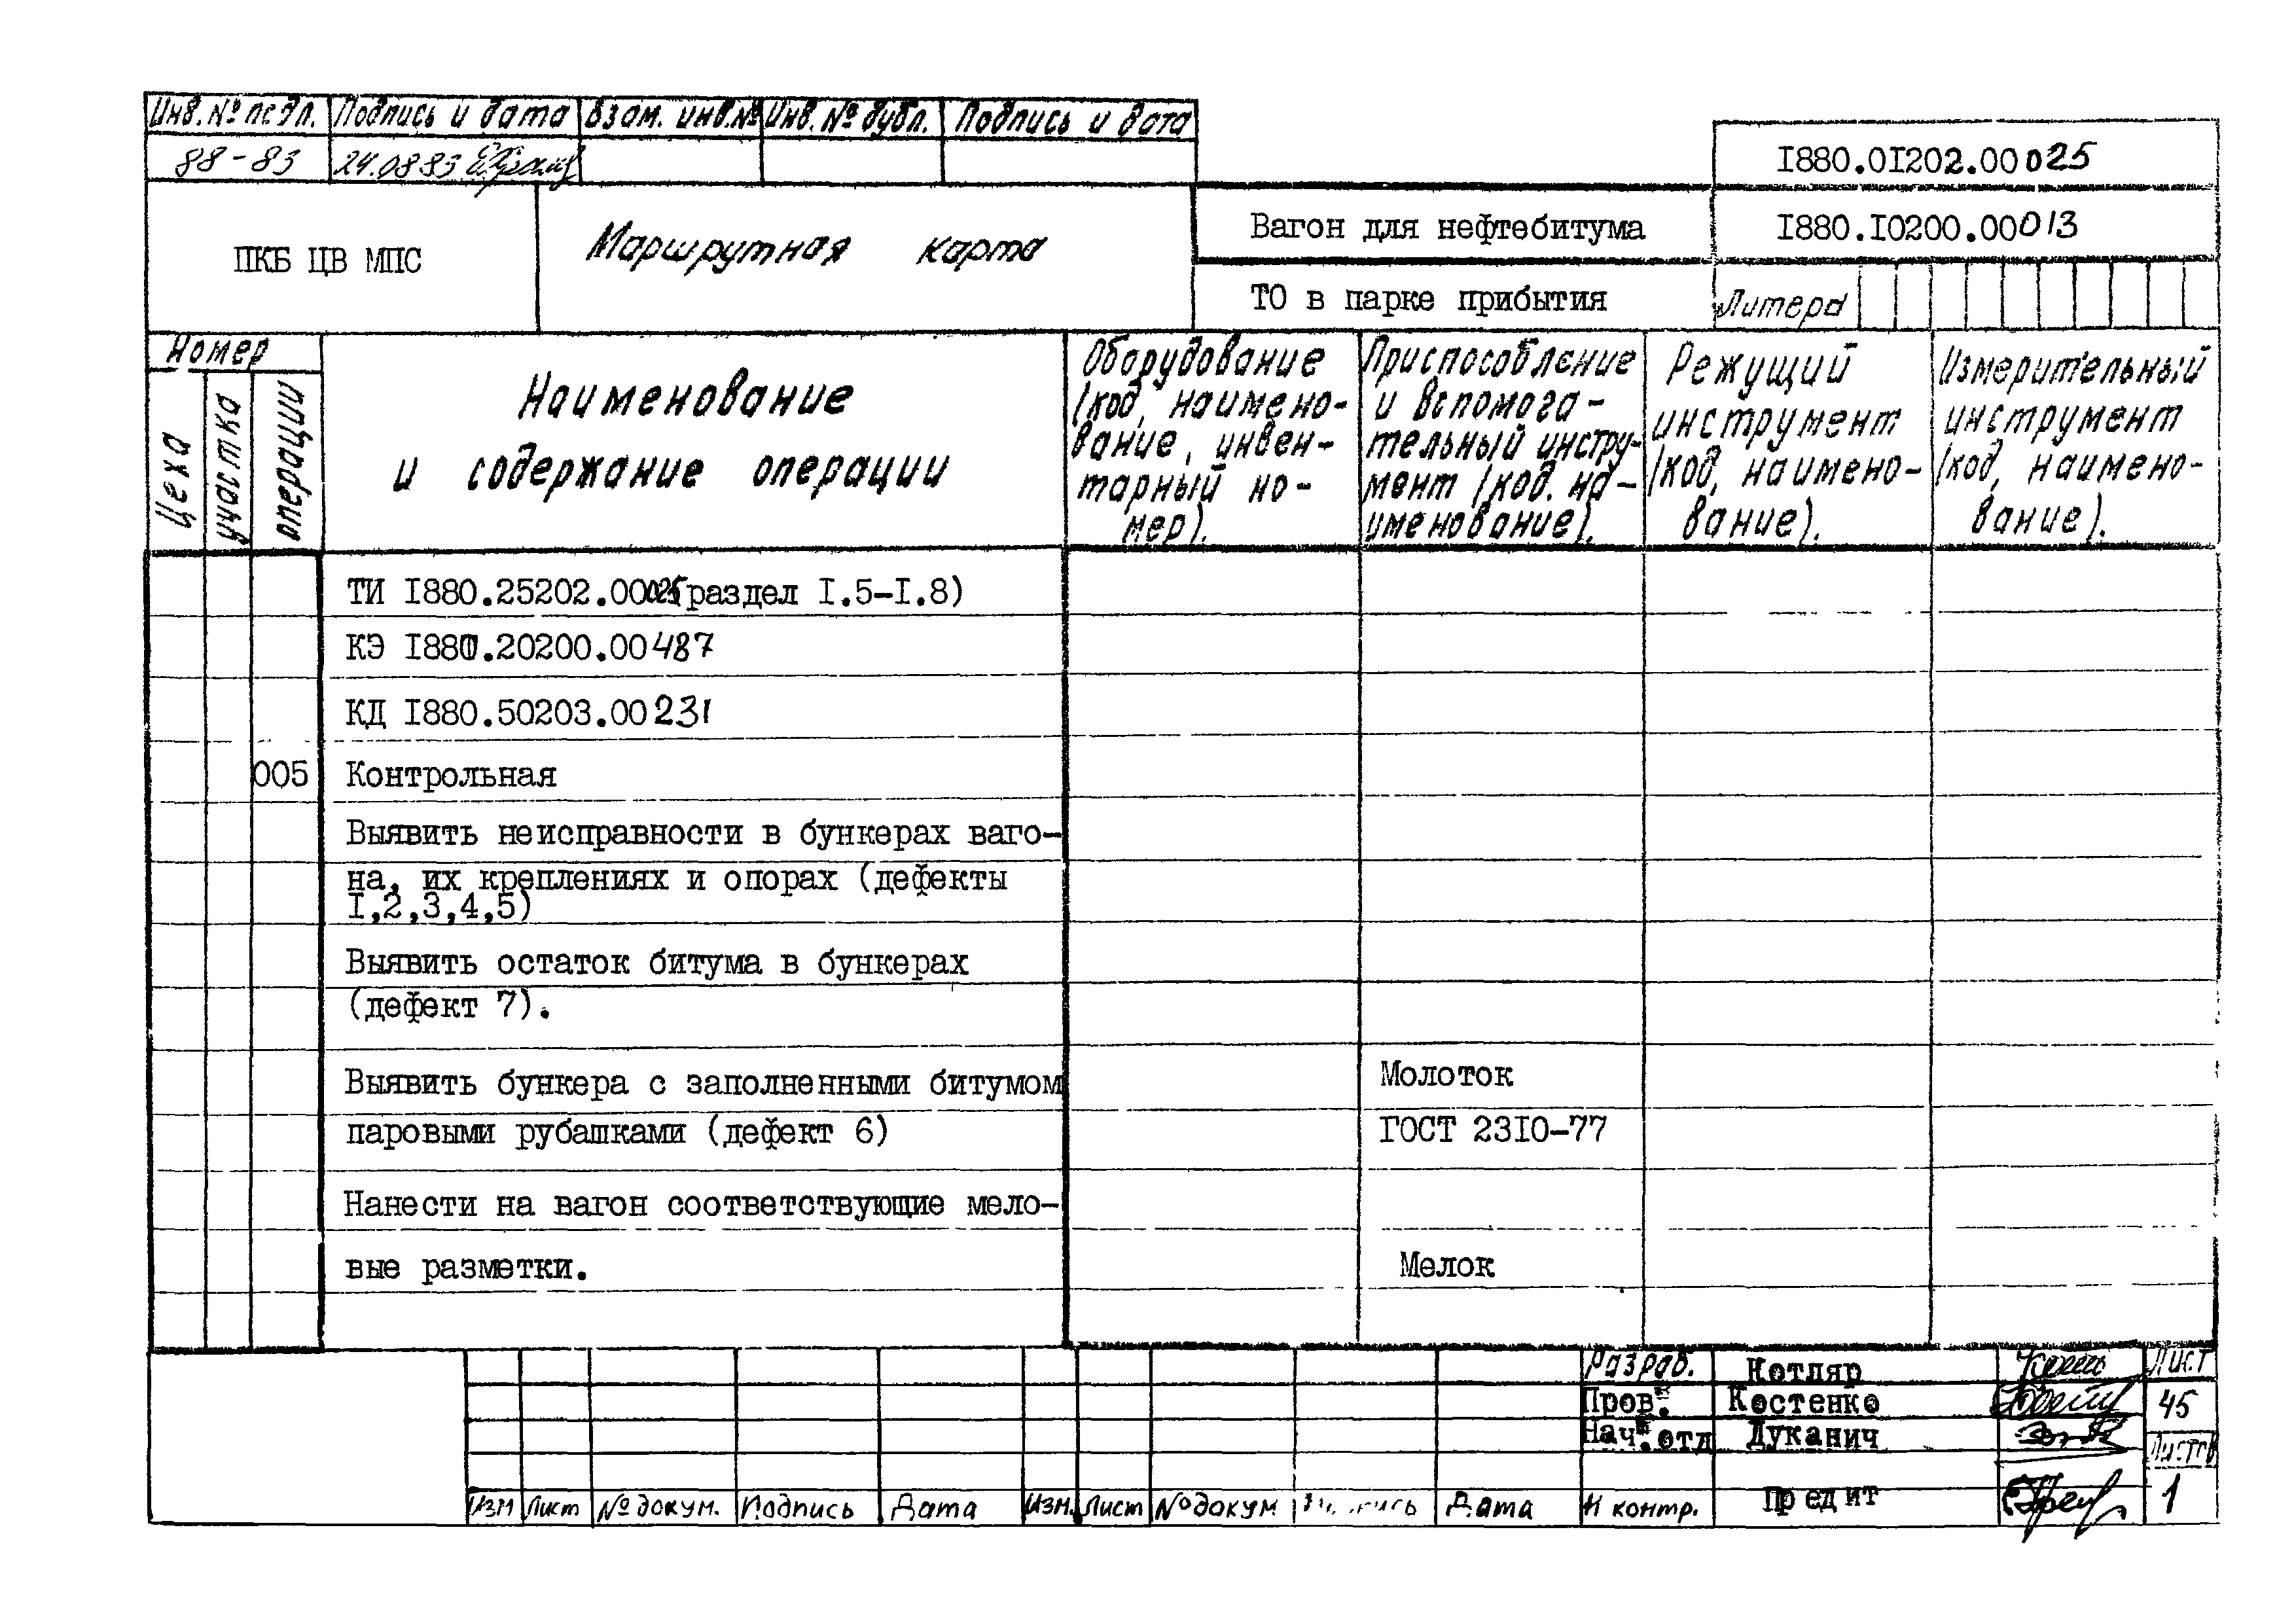 Инв. № подл. Подпись и дата Взам. инв. № Инв. № дубл. Подпись и дата
88-83 24.08.83
I880.0I202.00025
ПКБ ЦВ МПС Маршрутная карта Вагон для нефтебитума I880.I0200.00013
ТО в парке прибытия Литера
Номер
Цеха
участка
операции
Наименование
и содержание операции
Оборудование
(код, наимено-
вание, инвен-
тарный но-
мер).
Приспособление
и вспомога-
тельный инстру-
мент (код. на-
именование).
Режущий
инструмент
(код, наимено-
вание).
Измерительный
инструмент
(код, наимено-
вание).
ТИ I880.25202.00025(раздел I.5-I.8)
КЭ I880.20200.00487
КД I880.50203.00231
005 Контрольная
Выявить неисправности в бункерах ваго-
на, их креплениях и опорах (дефекты
I,2,3,4,5)
Выявить остаток битума в бункерах
(дефект 7).
Выявить бункера с заполненными битумом Молоток
паровыми рубашками (дефект 6) ГОСТ 23I0-77
Нанести на вагон соответствующие мело-
вые разметки. Мелок
Разраб. Котляр Лист
Пров. Костенко 45
Нач.отд Дуканич Листов
Изм Лист № докум. Подпись Дата Изм. Лист № докум Дата Н контр. Предит 1